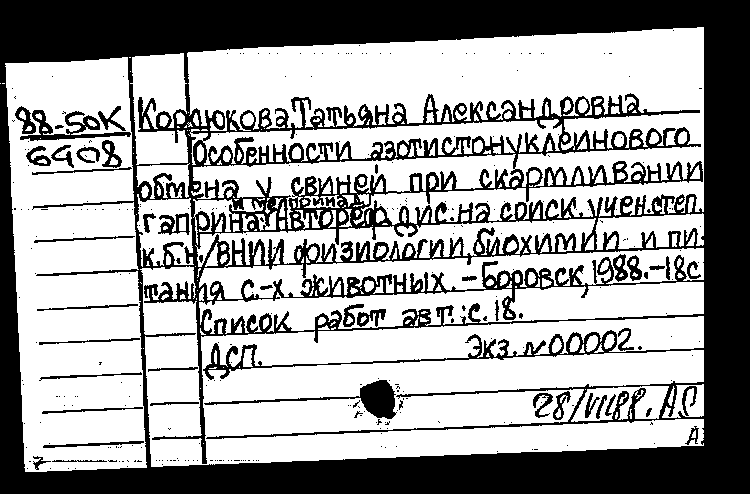 88-50К
6408
Кордюкова, Татьяна Александровна.
Особенности азотисто-нуклеинового
обмена у свиней при скармливании
и меприна
гаприна: Автореф. дис. на соиск. учен. степ.
к.б.н./ВНИИ физиологии, биохимии и пи-
тания с.-х. животных. – Боровск, 1988. – 18с
Список работ авт.: с. 18.
ДСП. Экз. №00002.
28/VII88.